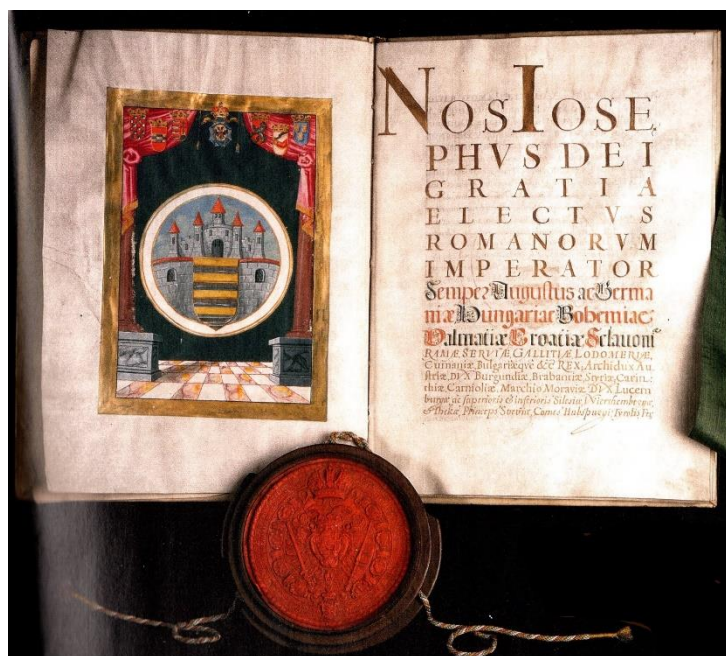 NOS IOSE
PHVS DEI
GRATIA
ELECTVS
ROMANORVM
IMPERATOR
Semper Augustus ac Germa
niæ Hungariæ Bohemiæ
Dalmatiæ Croatiæ Sclavoni
RAMÆ SERVIÆ GALLITIÆ LODOMERIÆ,
Cumaniæ, Bulgariæqve &c REX, Archidux Au,
striæ, DVX Burgundiæ, Brabantiæ Styriæ, Carin,
thiæ, Carnioliæ, Marchio Moraviæ DVX Lucem
burgæ ac superioris & inferioris Silesiæ
Princeps Sveviæ, Comes Habspurgi, Tyrolis